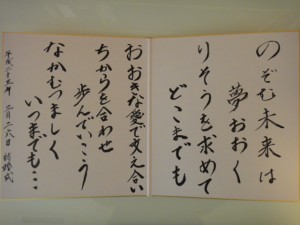 のぞむ未来は
夢おおく
りそうを求めて
どこまでも
おおきな愛で支え合い
ちからを合わせ
歩んでいこう
なかむつましく
いつまでも…
平成二十五年 二月二六日 結婚式